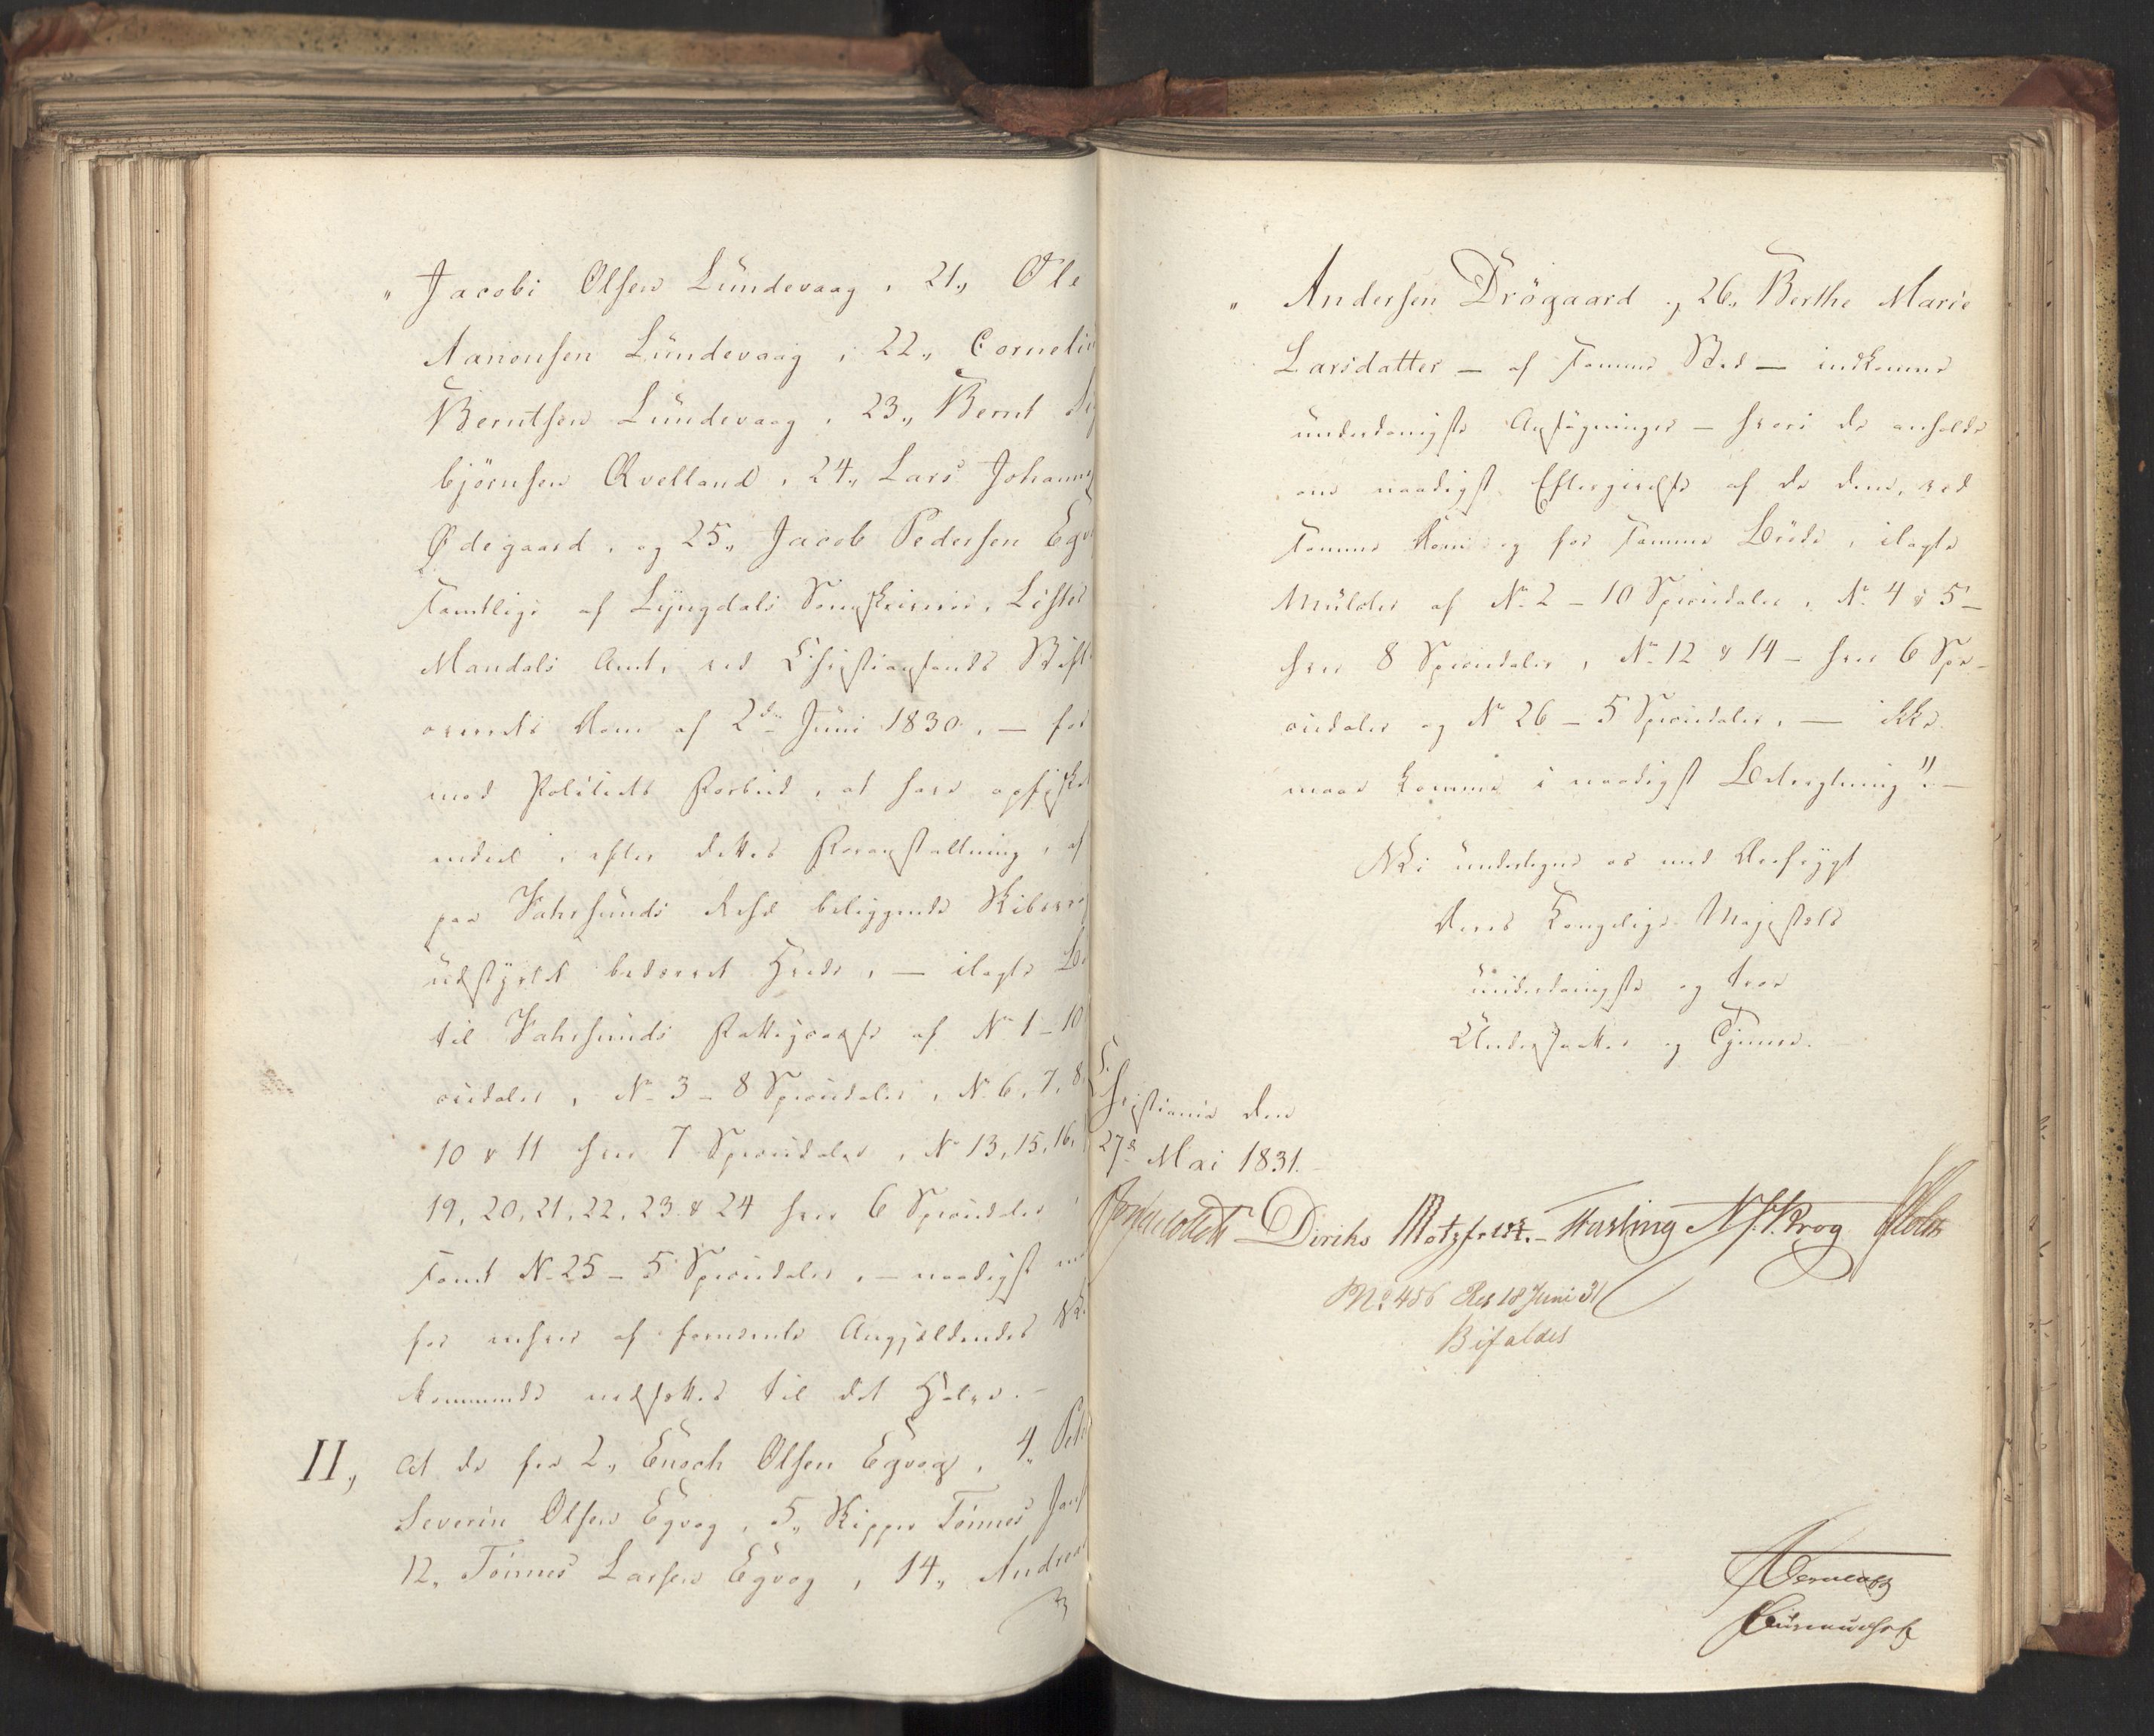 " Jacobi Olsen Lundevaag, 21, Ole
Aanonsen Lundevaag, 22, Corneliu
Berntsen Lundevaag, 23, Bernt
björnsen Qvelland, 24, Lars Johann
Ødegaard, og 25, Jacob Pedersen Egv
samtlige af Lyngdals Sorenskriverie, Lister
Mandals Amt, ved Christiansands Stift
overrets Dom af 2den Juni 1830, – for
mod Politiets Forbud, at have opfisket
endeel, efter dettes Foranstaltning, af
paa Fahrsunds Rehd beliggende Skibe
udstyrtet bedærvet Hvede, – ilagte Bø
til Fahrsunds Fattigcasse af No 1 – 10
ciedaler, No 3 – 8 Speciedaler, No 6, 7, 8
10 & 11 hver 7 Speciedaler, No 13, 15, 16,
19, 20, 21, 22, 23 & 24 hver 6 Speciedaler
samt No 25 – 5 Speciedaler, – naadigst
for enhver af forneunte Angjældendes
kommende nedsættes til det Halve. –
II, At de fra 2, Enoch Olsen Egvog, 4, Pet
Severin Olsen Egvog, 5, Skipper Tönnes Jans
12, Tönnes Larsen Egvog, 14, Andreas
" Andersen Drögaard, 26, Berthe Marie
Larsdatter – af samme Sted – indkomne
underdanigste Ansögninger – hvori de anholde
om naadigst Eftergivelse af de dem, ved
samme Dom og for samme Bröde, ilagte
Mulcter af No 2 – 10 Speciedaler, No 4 & 5 –
hver 8 Speciedaler, No 12 & 14 – hver 6 Spe-
ciedaler og No 26 – 5 Speciedaler, – ikke
maae komme i naadigst Betragtning". –
Vi undertegne os med Ærefrygt
Deres Kongelige Majestæts
underdanigste og troe
Undersaatter og Tjenere.
Christiania den
27de Mai 1831.
Diriks Motzfeldt. – Fasting N. J. Krog Holst
No 456 Res 18 Juni 31
Bifaldes